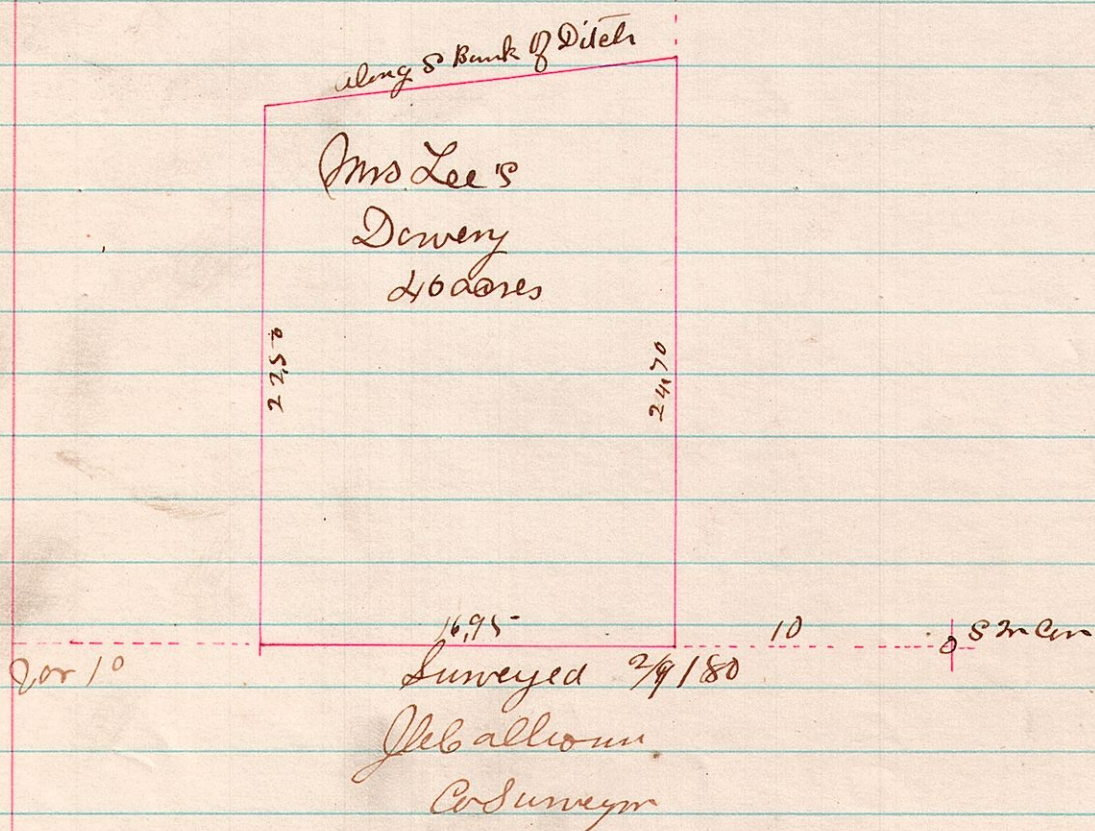 along S Bank of Ditch
Mrs Lee's
Dowery
40 acres
22,50
24,70
16,95
10
S Cor
Var 1°
Surveyed 2/9/80
Calhoun
Co Surveyor